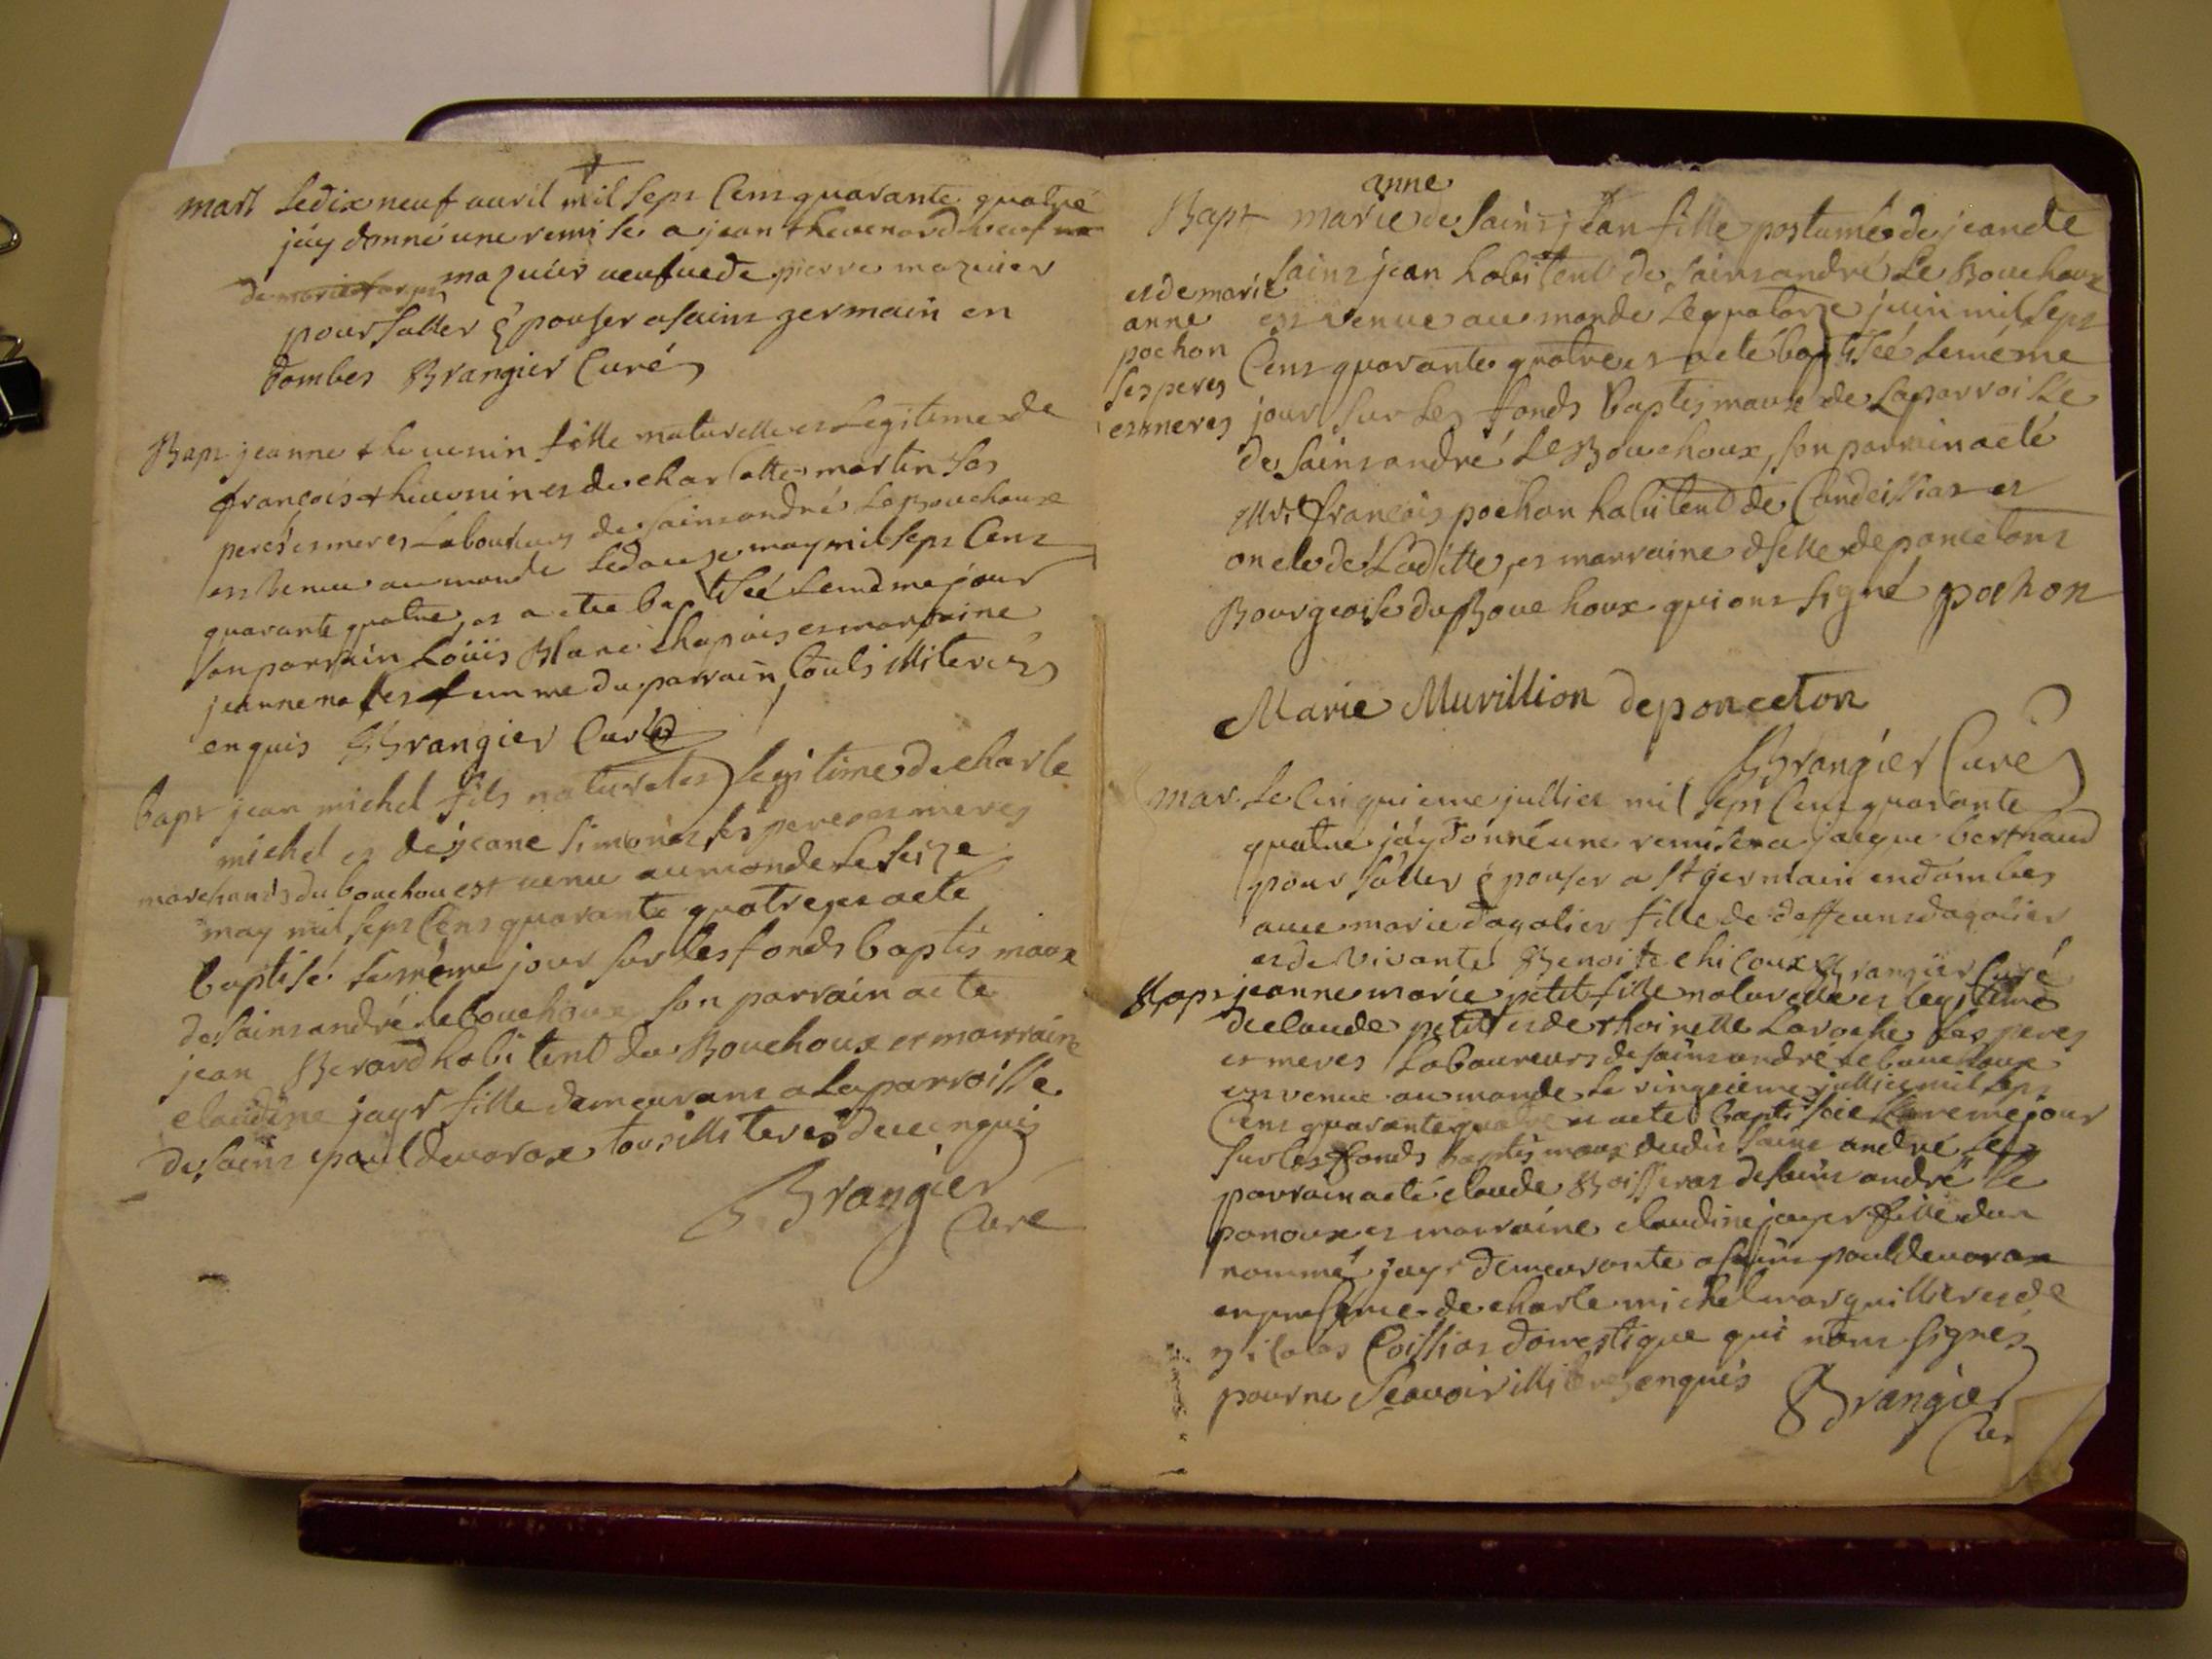 mari Le dix neuf auril mil sept Cens quarante quatre
jay donné une remise a jean thevenard veuf
de marie mazuir veufue de pierre mazuier
pour saller épouser a saint germain en
dombes Brangier Curé
Bapt jeanne thevenin fille naturelle et Legitime de
françois thievenin et de charlotte martin ses
peres et meres Laboureurs de saint andré Le Bouchoux
est venue au monde Le douze may mil sept Cent
quarante quatre, et a été baptisée Le mdme jour
son parrain Loüis Blanc Chapuis et marraine
jeanne femme du parrain, touts illiterés
enquis Brangier Curé
bapt jean michel fils naturel et Legitime de charle
michel et de jeane simonet ses peres et meres
marchands du bouchou est venu au monde Le seize
may mil sept Cens quarante quatre, et a eté
baptisé Le méme jour sur les fonds baptismaux
de saint andré Le bouchoux son parrain a eté
jean Berard habitent du Bouchoux et marraine
claudine jayr fille demeurant a La parroisse
de saint paul de varax tous illiterés de ce enquis
Brangier
Curé
anne
Bapt marie de saint jean fille postume de jean de
saint jean habitent de saint andré Le Bouchoux
et de marie
anne
pochon
ses peres
et meres
est venue au monde Le quatorze juin mil sept
Cent quarante quatre et a eté baptisée Le méme
jour sur Les fonds baptismaux de La parroisse
de saint andré Le Bouchoux, son parrain a eté
Mre françois pochon habitent de Condeissiat et
oncle de Laditte, et marraine dselle de poncetons
Bourgeoise du Bouchoux qui ont signé pochon
Marie Muvillion deponceton
Brangier Curé
mar. Le Cinquieme jullier mil sept Cent quarante
quatre jáy donné une remise a jacque berthaud
pour saller épouser a St germain en dombes
avec marie dagalier fille de deffeunt dagalier
et de vivante Benoite chicoux Brangier Curé
Bapt jeanne marie petit fille naturelle et legitime
de claude petit et de thoinette Laroche ses peres
et meres Laboureurs de saint andré Le bouchoux
est venue au monde Le vingtieme jullier mil sept
Cens quarante quatre et a eté baptisée Le meme jour
sur les fonds baptismaux dudit saint andré
parrain a eté claude Boisserat de saint andré le
panoux et marraine claudine jayr fille d'un
nommé jayr demeurante a saint paul de varax
en presence de charle michel marguillier et de
nicolas Coissias domestique qui n'ont signés
pour ne Sçavoir illiteres enquis Brangier
Cur